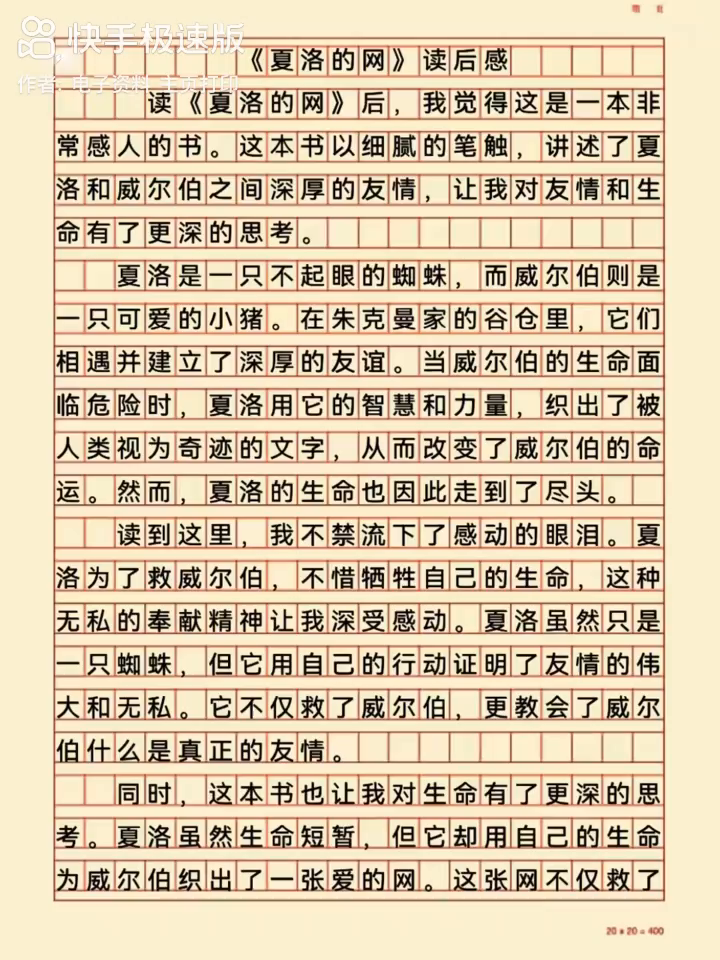 快手极速版
作者:电子资料 主页打印
《夏洛的网》读后感
读《夏洛的网》后，我觉得这是一本非
常感人的书。这本书以细腻的笔触，讲述了夏
洛和威尔伯之间深厚的友情，让我对友情和生
命有了更深的思考。
夏洛是一只不起眼的蜘蛛，而威尔伯则是
一只可爱的小猪。在朱克曼家的谷仓里，它们
相遇并建立了深厚的友谊。当威尔伯的生命面
临危险时，夏洛用它的智慧和力量，织出了被
人类视为奇迹的文字，从而改变了威尔伯的命
运。然而，夏洛的生命也因此走到了尽头。
读到这里，我不禁流下了感动的眼泪。夏
洛为了救威尔伯，不惜牺牲自己的生命，这种
无私的奉献精神让我深受感动。夏洛虽然只是
一只蜘蛛，但它用自己的行动证明了友情的伟
大和无私。它不仅救了威尔伯，更教会了威尔
伯什么是真正的友情。
同时，这本书也让我对生命有了更深的思
考。夏洛虽然生命短暂，但它却用自己的生命
为威尔伯织出了一张爱的网。这张网不仅救了
20*20=400